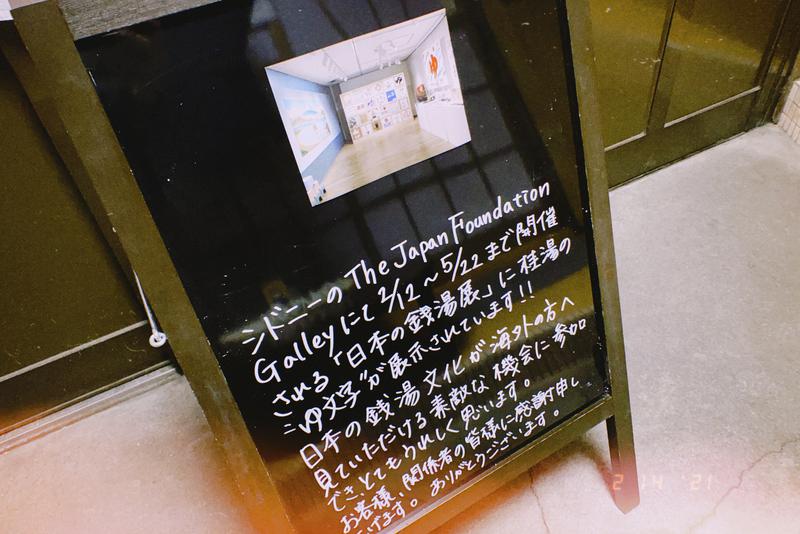 シドニーの The Japan Foundation
Galleyにて 2/12~5/22まで開催
される「日本の銭湯展」に桂湯の
"ゆ文字"が展示されています!!
日本の銭湯文化が海外の方へ
見ていただける素敵な機会に参加
でき、とてもうれしく思います。
お客様、関係者の皆様に感謝申し
上げます。ありがとうございます。
2 14 '21